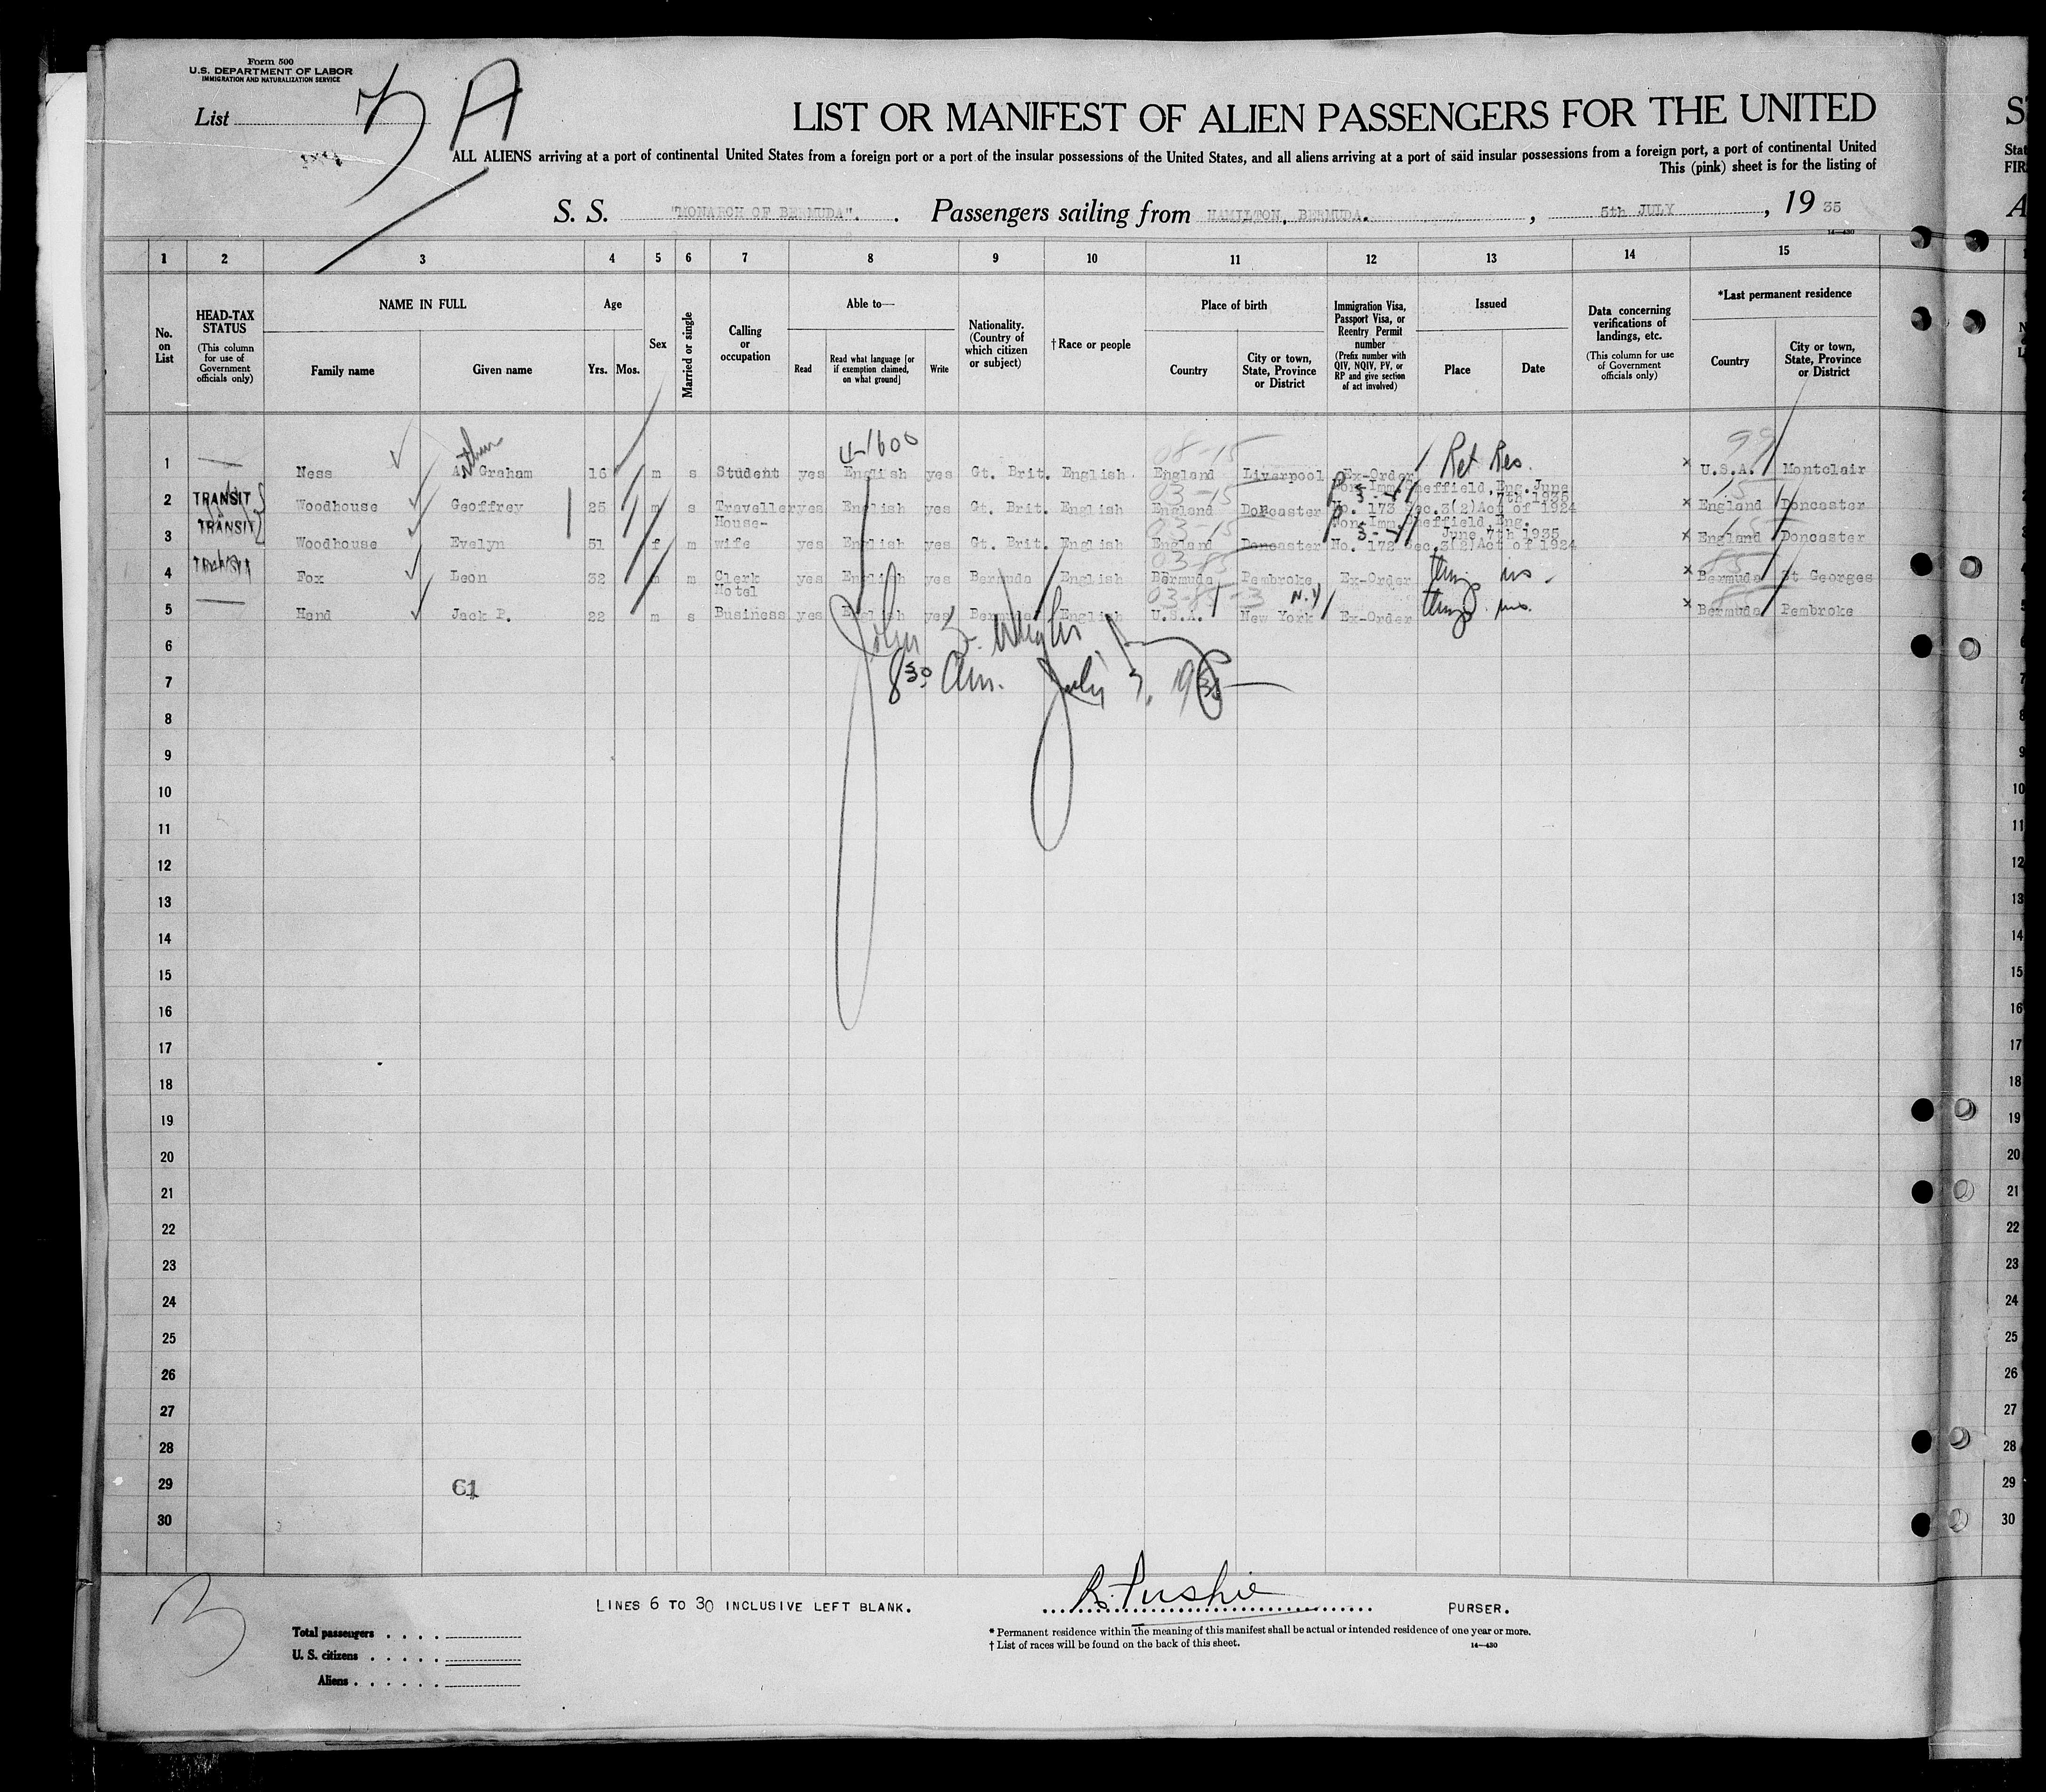 Form 500
U.S. DEPARTMENT OF LABOR
IMMIGRATION AND NATURALIZATION SERVICE
List
A
LIST OR MANIFEST OF ALIEN PASSENGERS FOR THE UNITED
ALL ALIENS arriving at a port of continental United States from a foreign port or a port of the insular possessions of the United States, and all aliens arriving at a port of said insular possessions from a foreign port, a port of continental United
This (pink) sheet is for the listing of
S. S. "MONARCH OF BERMUDA". Passengers sailing from HAMILTON, BERMUDA. , 5th JULY , 19 35
14—430
1 2 3 4 5 6 7 8 9 10 11 12 13 14 15
No. on List
HEAD-TAX STATUS (This column for use of Government officials only)
NAME IN FULL Family name Given name
Age Yrs. Mos.
Sex
Married or single
Calling or occupation
Able to— Read Read what language [or if exemption claimed, on what ground] Write
Nationality. (Country of which citizen or subject)
†Race or people
Place of birth Country City or town, State, Province or District
Immigration Visa, Passport Visa, or Reentry Permit number (Prefix number with QIV, NQIV, PV, or RP and give section of act involved)
Issued Place Date
Data concerning verifications of landings, etc. (This column for use of Government officials only)
*Last permanent residence Country City or town, State, Province or District
4-1600 08-15 99
1 Ness A. Graham 16 m s Student yes English yes Gt. Brit. English England Liverpool Ex-Order Ret Res. x U.S.A. Montclair
03-15 Non-Imm. Sheffield, Eng. June 7th 1935 15
2 TRANSIT Woodhouse Geoffrey 25 m s Traveller yes English yes Gt. Brit. English England Doncaster No. 173 Sec.3(2)Act of 1924 x England Doncaster
03-15 Non-Imm. Sheffield, Eng. June 7th 1935 15
3 TRANSIT Woodhouse Evelyn 51 f m House-wife yes English yes Gt. Brit. English England Doncaster No. 172 Sec.3(2)Act of 1924 x England Doncaster
03-85 85
4 Fox Leon 32 m m Clerk yes English yes Bermuda English Bermuda Pembroke Ex-Order x Bermuda St Georges
03-85-3 N.Y 85
5 Hand Jack P. 22 m s Hotel Business yes English yes Bermuda English U.S.A. New York Ex-Order x Bermuda Pembroke
6
7 8 30 am. July 1935
8
9
10
11
12
13
14
15
16
17
18
19
20
21
22
23
24
25
26
27
28
29 61
30
LINES 6 TO 30 INCLUSIVE LEFT BLANK.
R. Pushie PURSER.
Total passengers
U. S. citizens
Aliens
* Permanent residence within the meaning of this manifest shall be actual or intended residence of one year or more.
† List of races will be found on the back of this sheet.
14—430